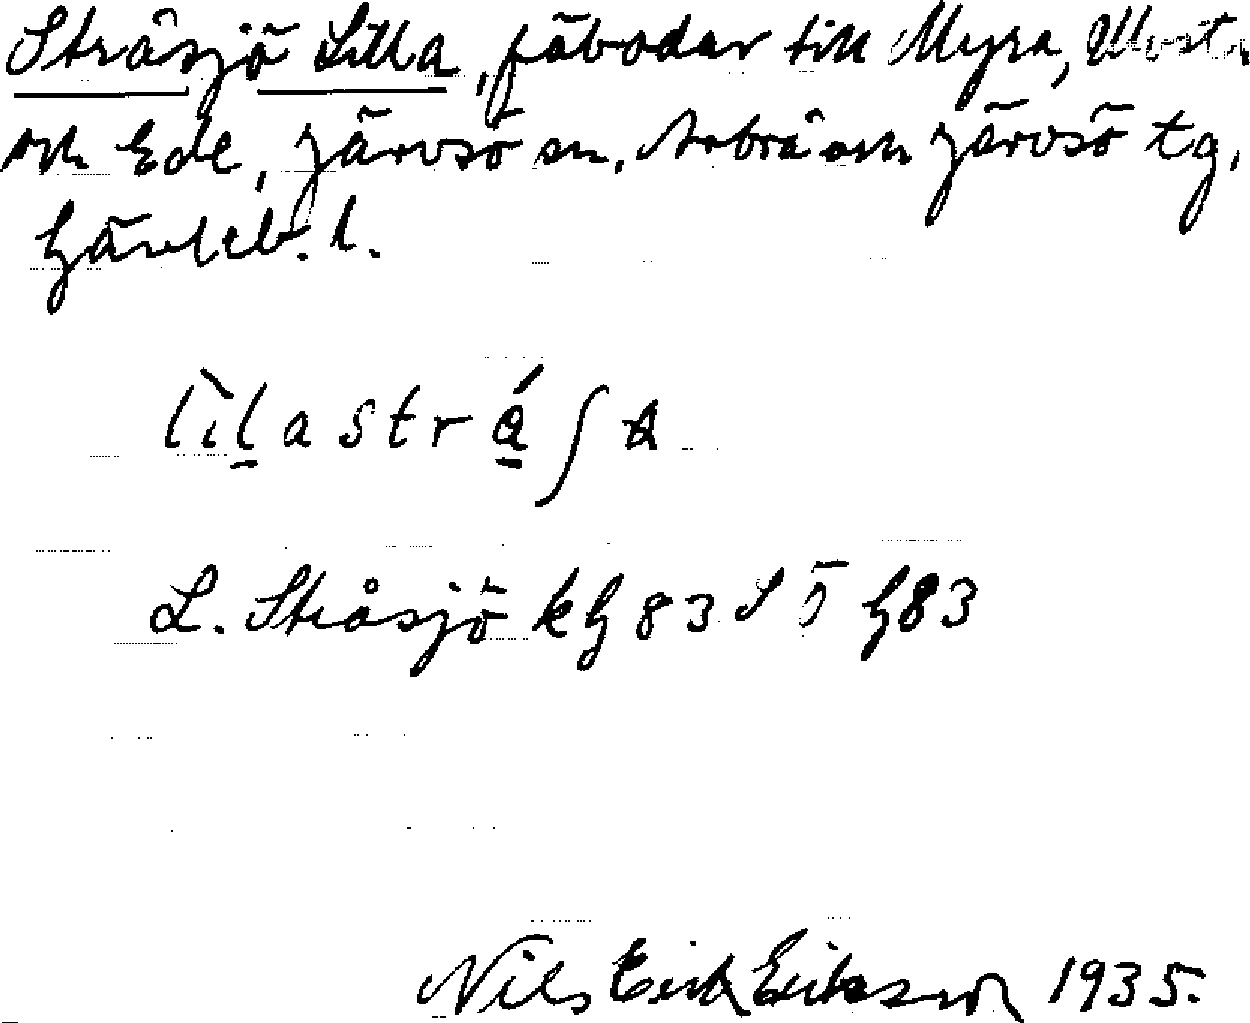 Stråsjö Lilla, fäbodar till Myra,
och Ede, Järvsö sn, Arbrå och Järvsö tg,
Gävleb. l.
lìlastráʃa
L. Stråsjö k G 83 S Ö G83
Nils Erik Eriksson 1935.